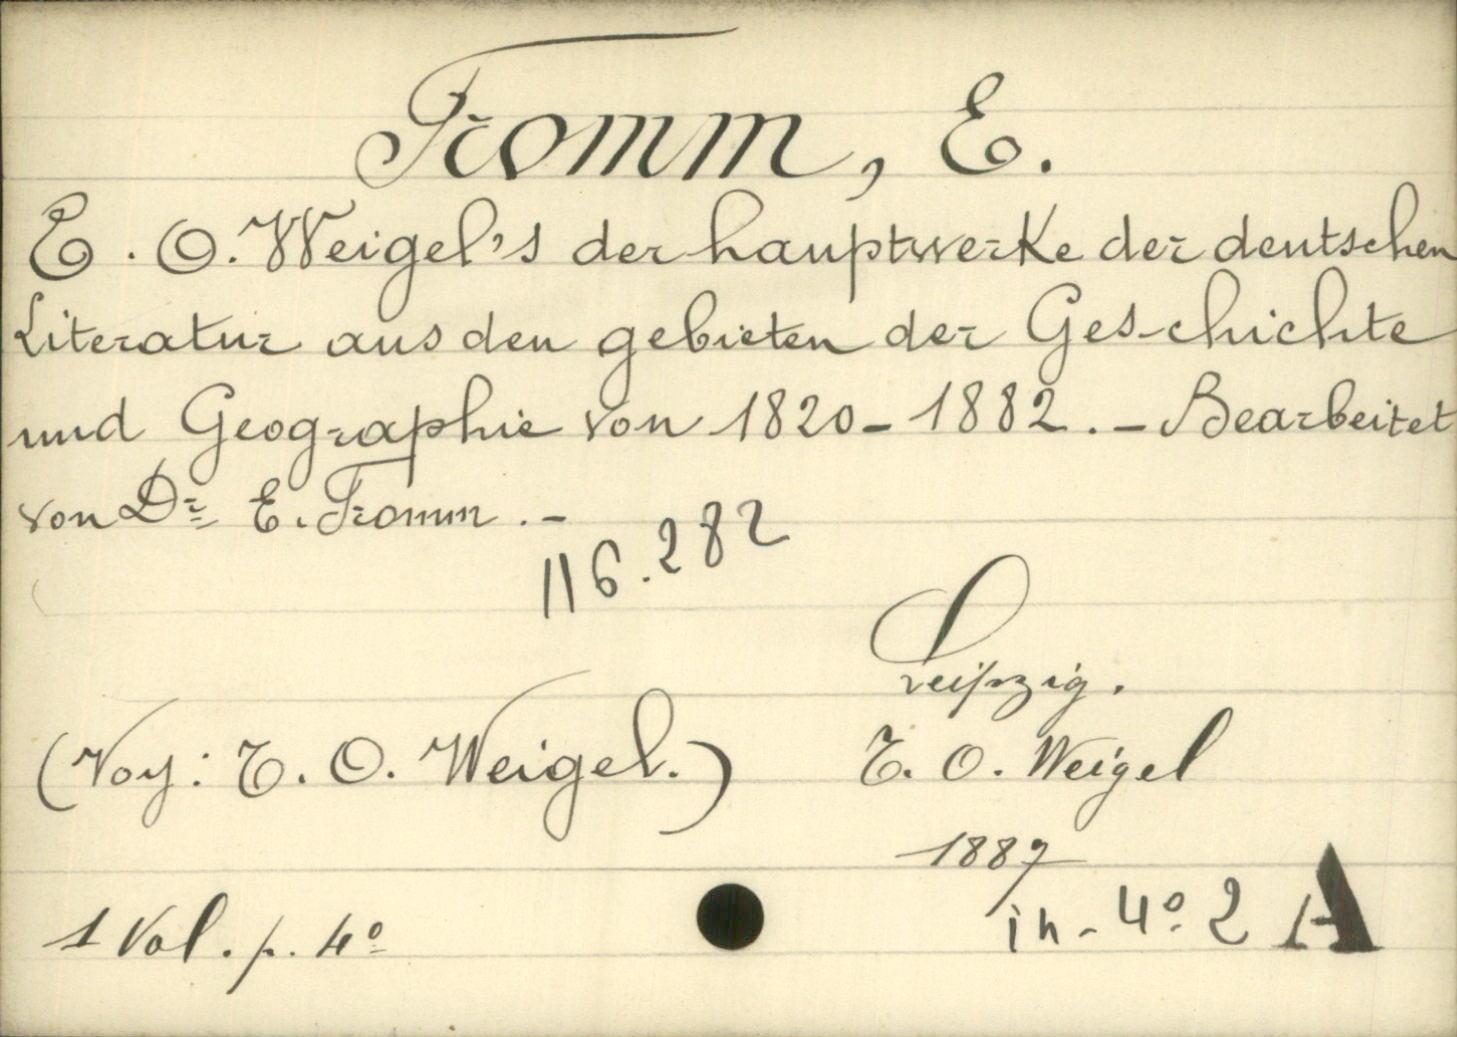 Fromm, E.
E. O. Weigel's der hauptwerke der deutschen
Literatur aus den gebieten der Geschichte
und Geographie von 1820-1882. - Bearbeitet
von Dr E. Fromm. -
116.282
Leipzig.
(Voy: T. O. Weigel.) T. O. Weigel
1887
1 Vol. p. 4º in-4º 2 A